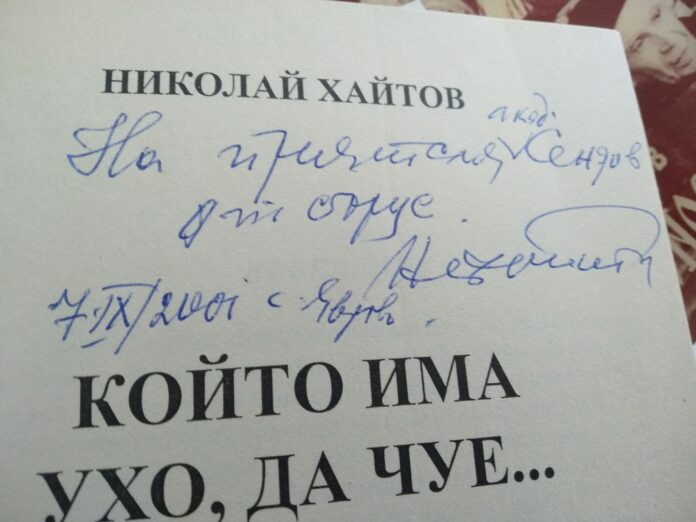 НИКОЛАЙ ХАЙТОВ
акад.
На приятеля Сендов
от сърце.
Н Хайтов
7·IX/2001 с Яврово.
КОЙТО ИМА
УХО, ДА ЧУЕ...